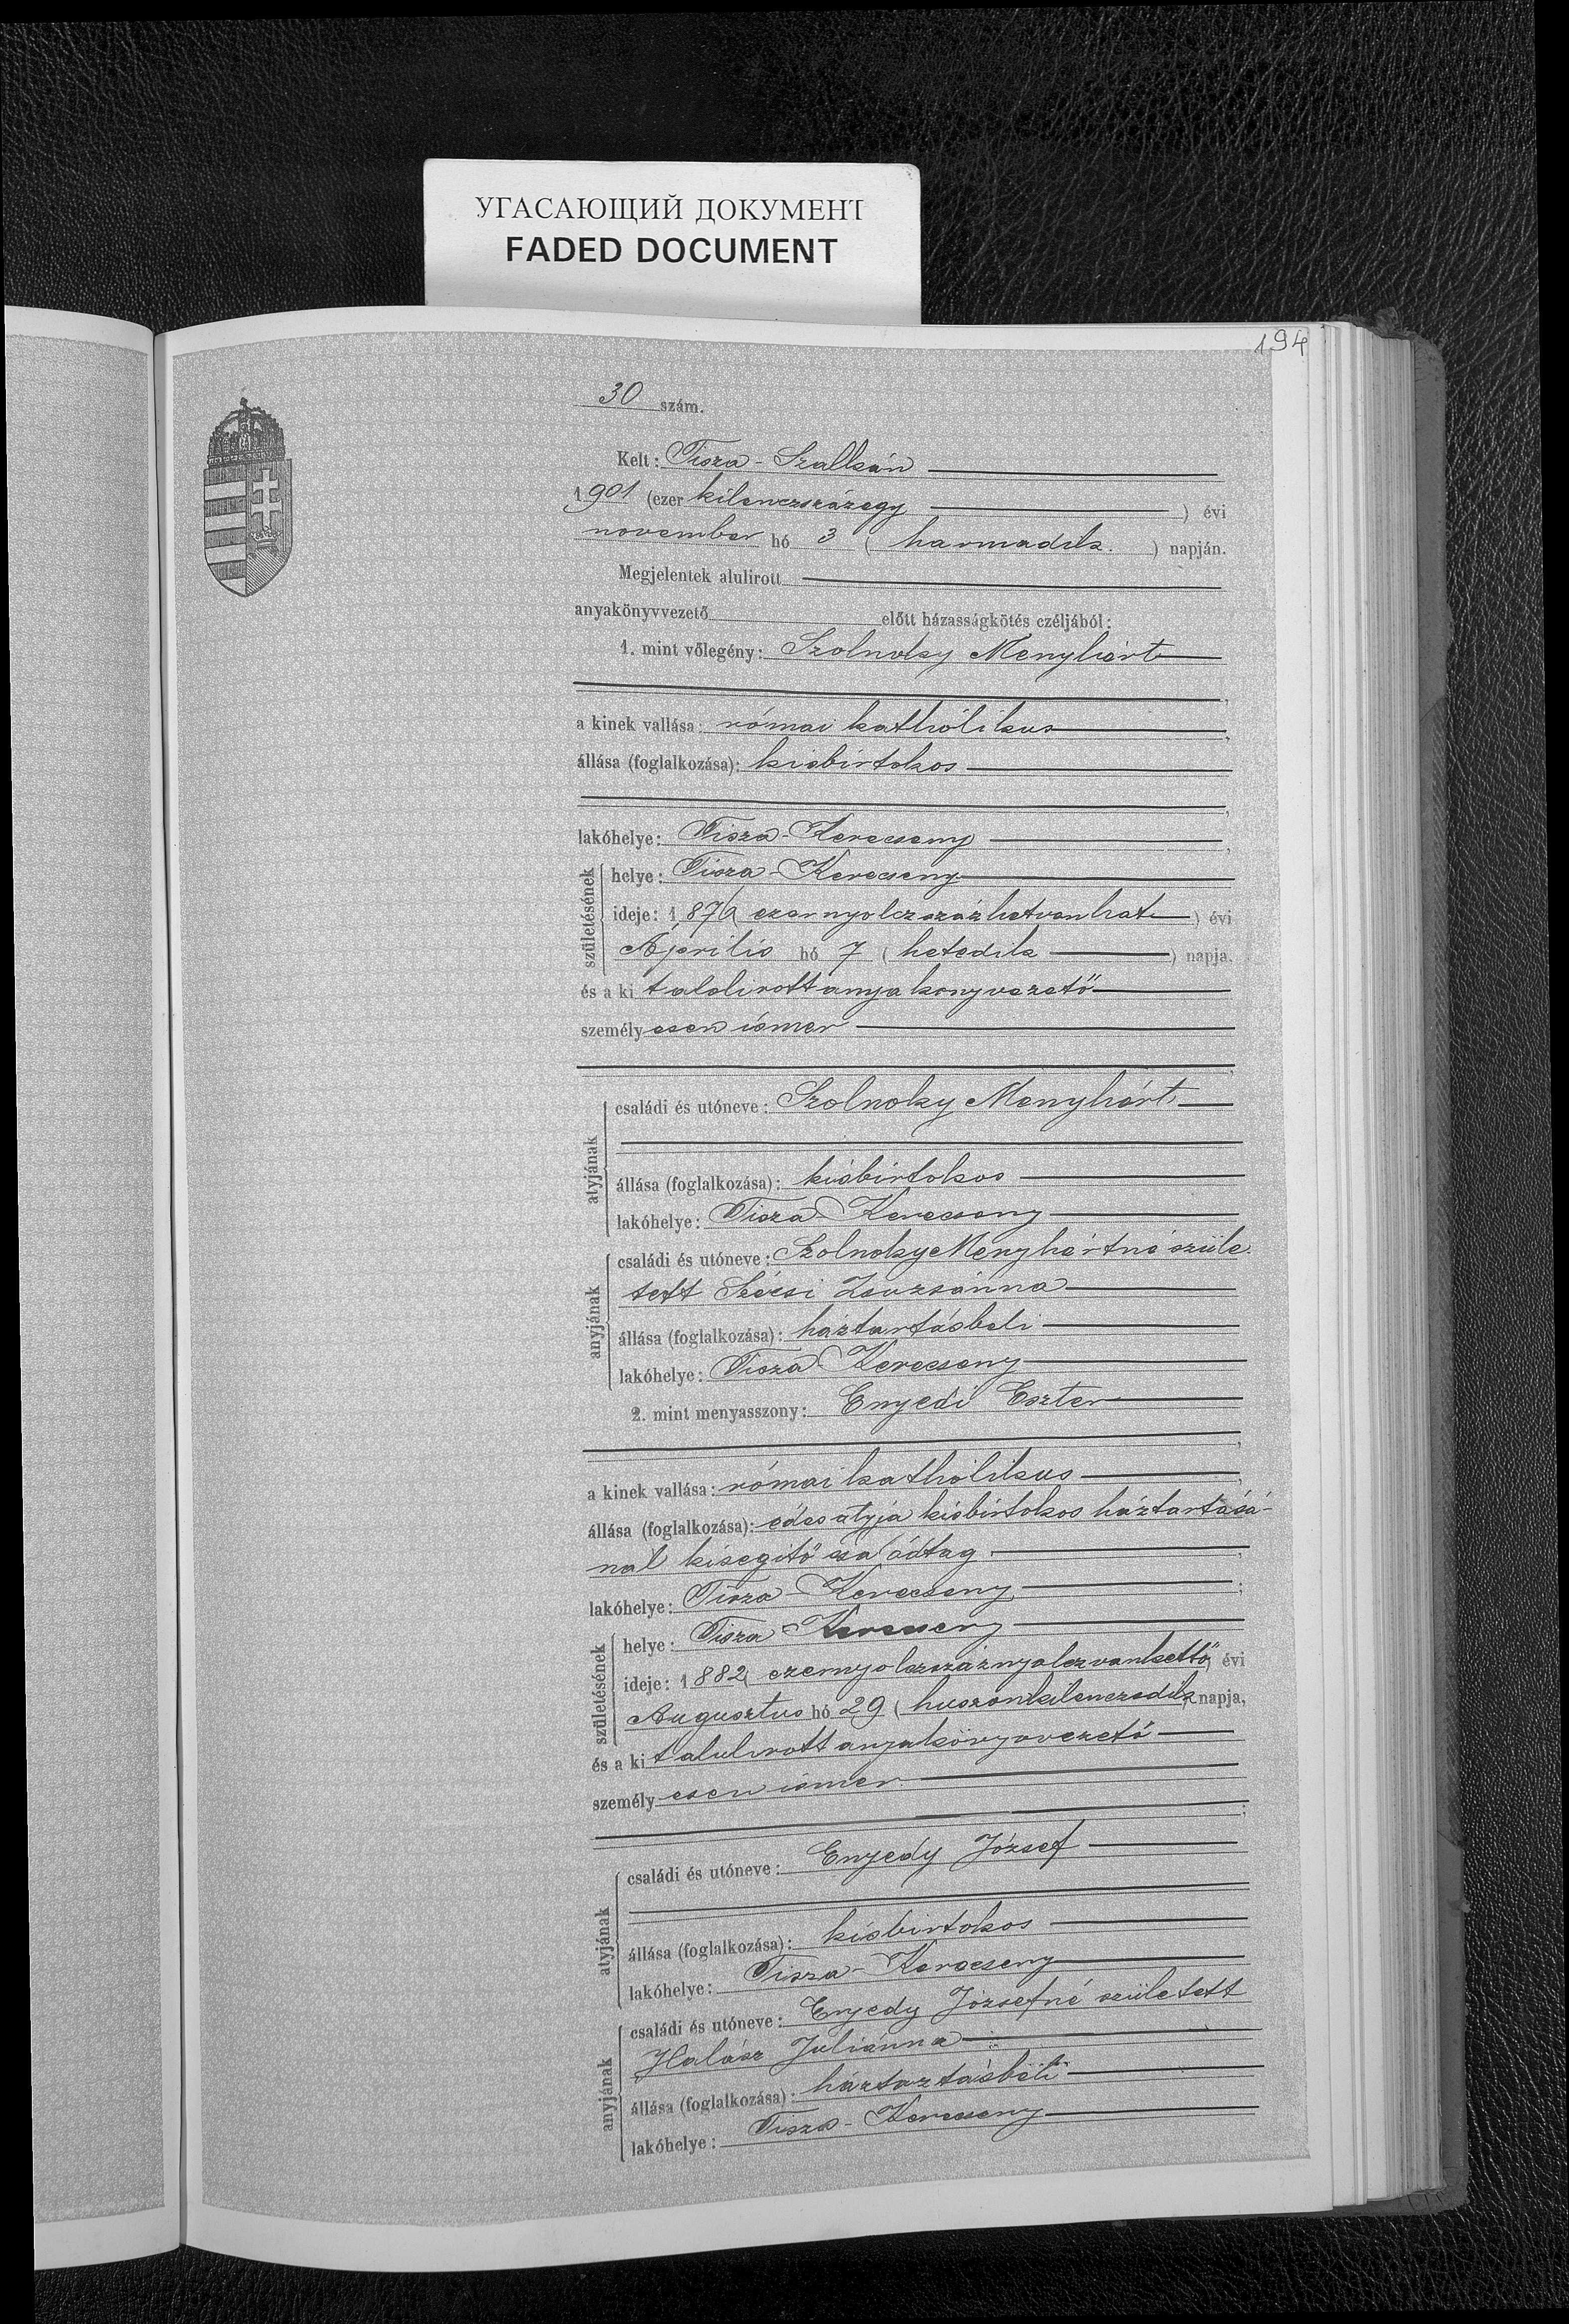 УГАСАЮЩИЙ ДОКУМЕНТ
FADED DOCUMENT
194
30 szám.
Kelt: Tisza-Szalkán
1901 (ezer kilenczszázegy ) évi
november hó 3 ( harmadik. ) napján.
Megjelentek alulirott
anyakönyvvezető előtt házasságkötés czéljából:
1. mint vőlegény: Szolnoky Menyhért
a kinek vallása: római katholikus
állása (foglalkozása): kisbirtokos
lakóhelye: Tisza-Kerecseny
születésének
helye: Tisza-Kerecseny
ideje: 1876 ezernyolczszázhetvenhat ) évi
Április hó 7 ( hetedik ) napja,
és a ki t alolirott anyakonyvezető
személy esen ismer
atyjának
családi és utóneve: Szolnoky Menyhért
állása (foglalkozása): kisbirtokos
lakóhelye: Tisza-Kerecseny
anyjának
családi és utóneve: Szolnoky Menyhértné szüle
tett Szécsi Zsuzsánna
állása (foglalkozása): háztartásbeli
lakóhelye: Tisza Kerecseny
2. mint menyasszony: Enyedi Eszter
a kinek vallása: római katholikus
állása (foglalkozása): édesatyja kisbirtokos háztartásá-
nál kisegitő családtag
lakóhelye: Tisza-Kerecseny
születésének
helye: Tisza-Kerecseny
ideje: 1882 ezernyolczszáznyolczvankettő) évi
Augusztus hó 29 ( huszonkilenczedik napja,
és a ki t alulirott anyakönyvvezető
személy esen ismer
atyjának
családi és utóneve: Enyedy József
állása (foglalkozása): kisbirtokos
lakóhelye: Tisza-Kerecseny
anyjának
családi és utóneve: Enyedy Józsefné született
Halász Juliánna
állása (foglalkozása): háztartásbeli
lakóhelye: Tisza-Kerecseny